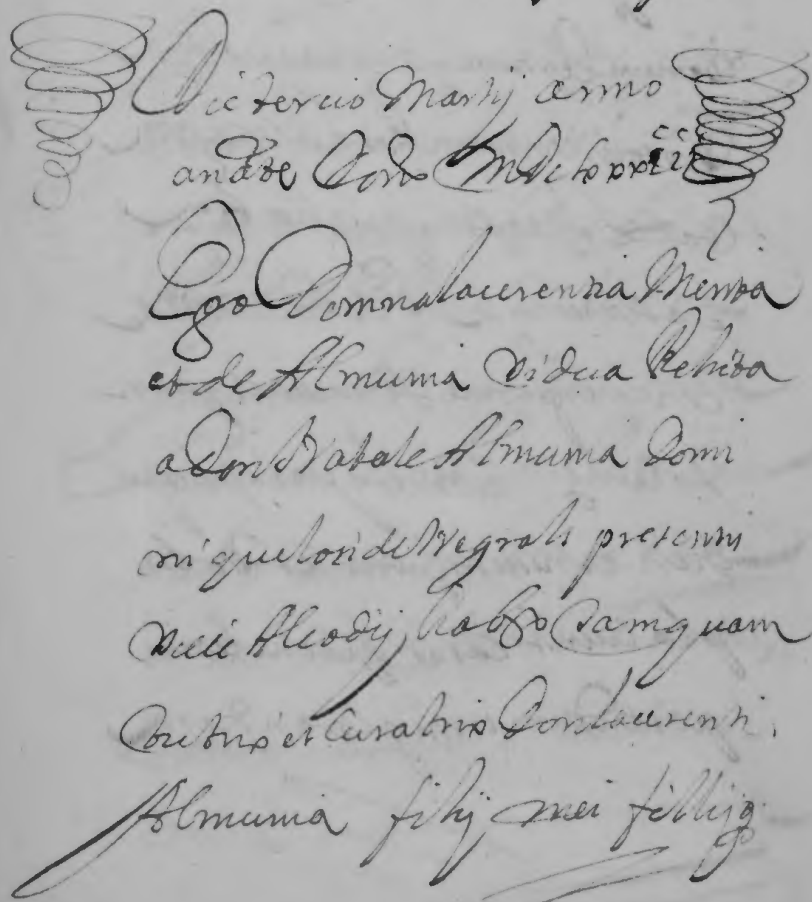 Die tercio Martij anno
a natte Domi MDCLxxxiiii
Ego Domna Laurentia Mensa
et de Almunia vidua Relicta
a Don Natale Almunia Domi
ni que loci de Negrals presentis
Ville Alcodij habrx tamquam
tutrix et Curatrix Don Laurenti
Almunia filij mei filijq